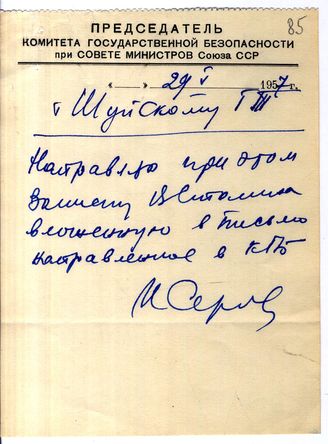 85
ПРЕДСЕДАТЕЛЬ
КОМИТЕТА ГОСУДАРСТВЕННОЙ БЕЗОПАСНОСТИ
при СОВЕТЕ МИНИСТРОВ Союза ССР
« » 29 V 1957 г.
т Шуйскому Г Т
Направляю при этом
записку В Сталина
вложенную в письмо
направленное в КГБ
И Серов